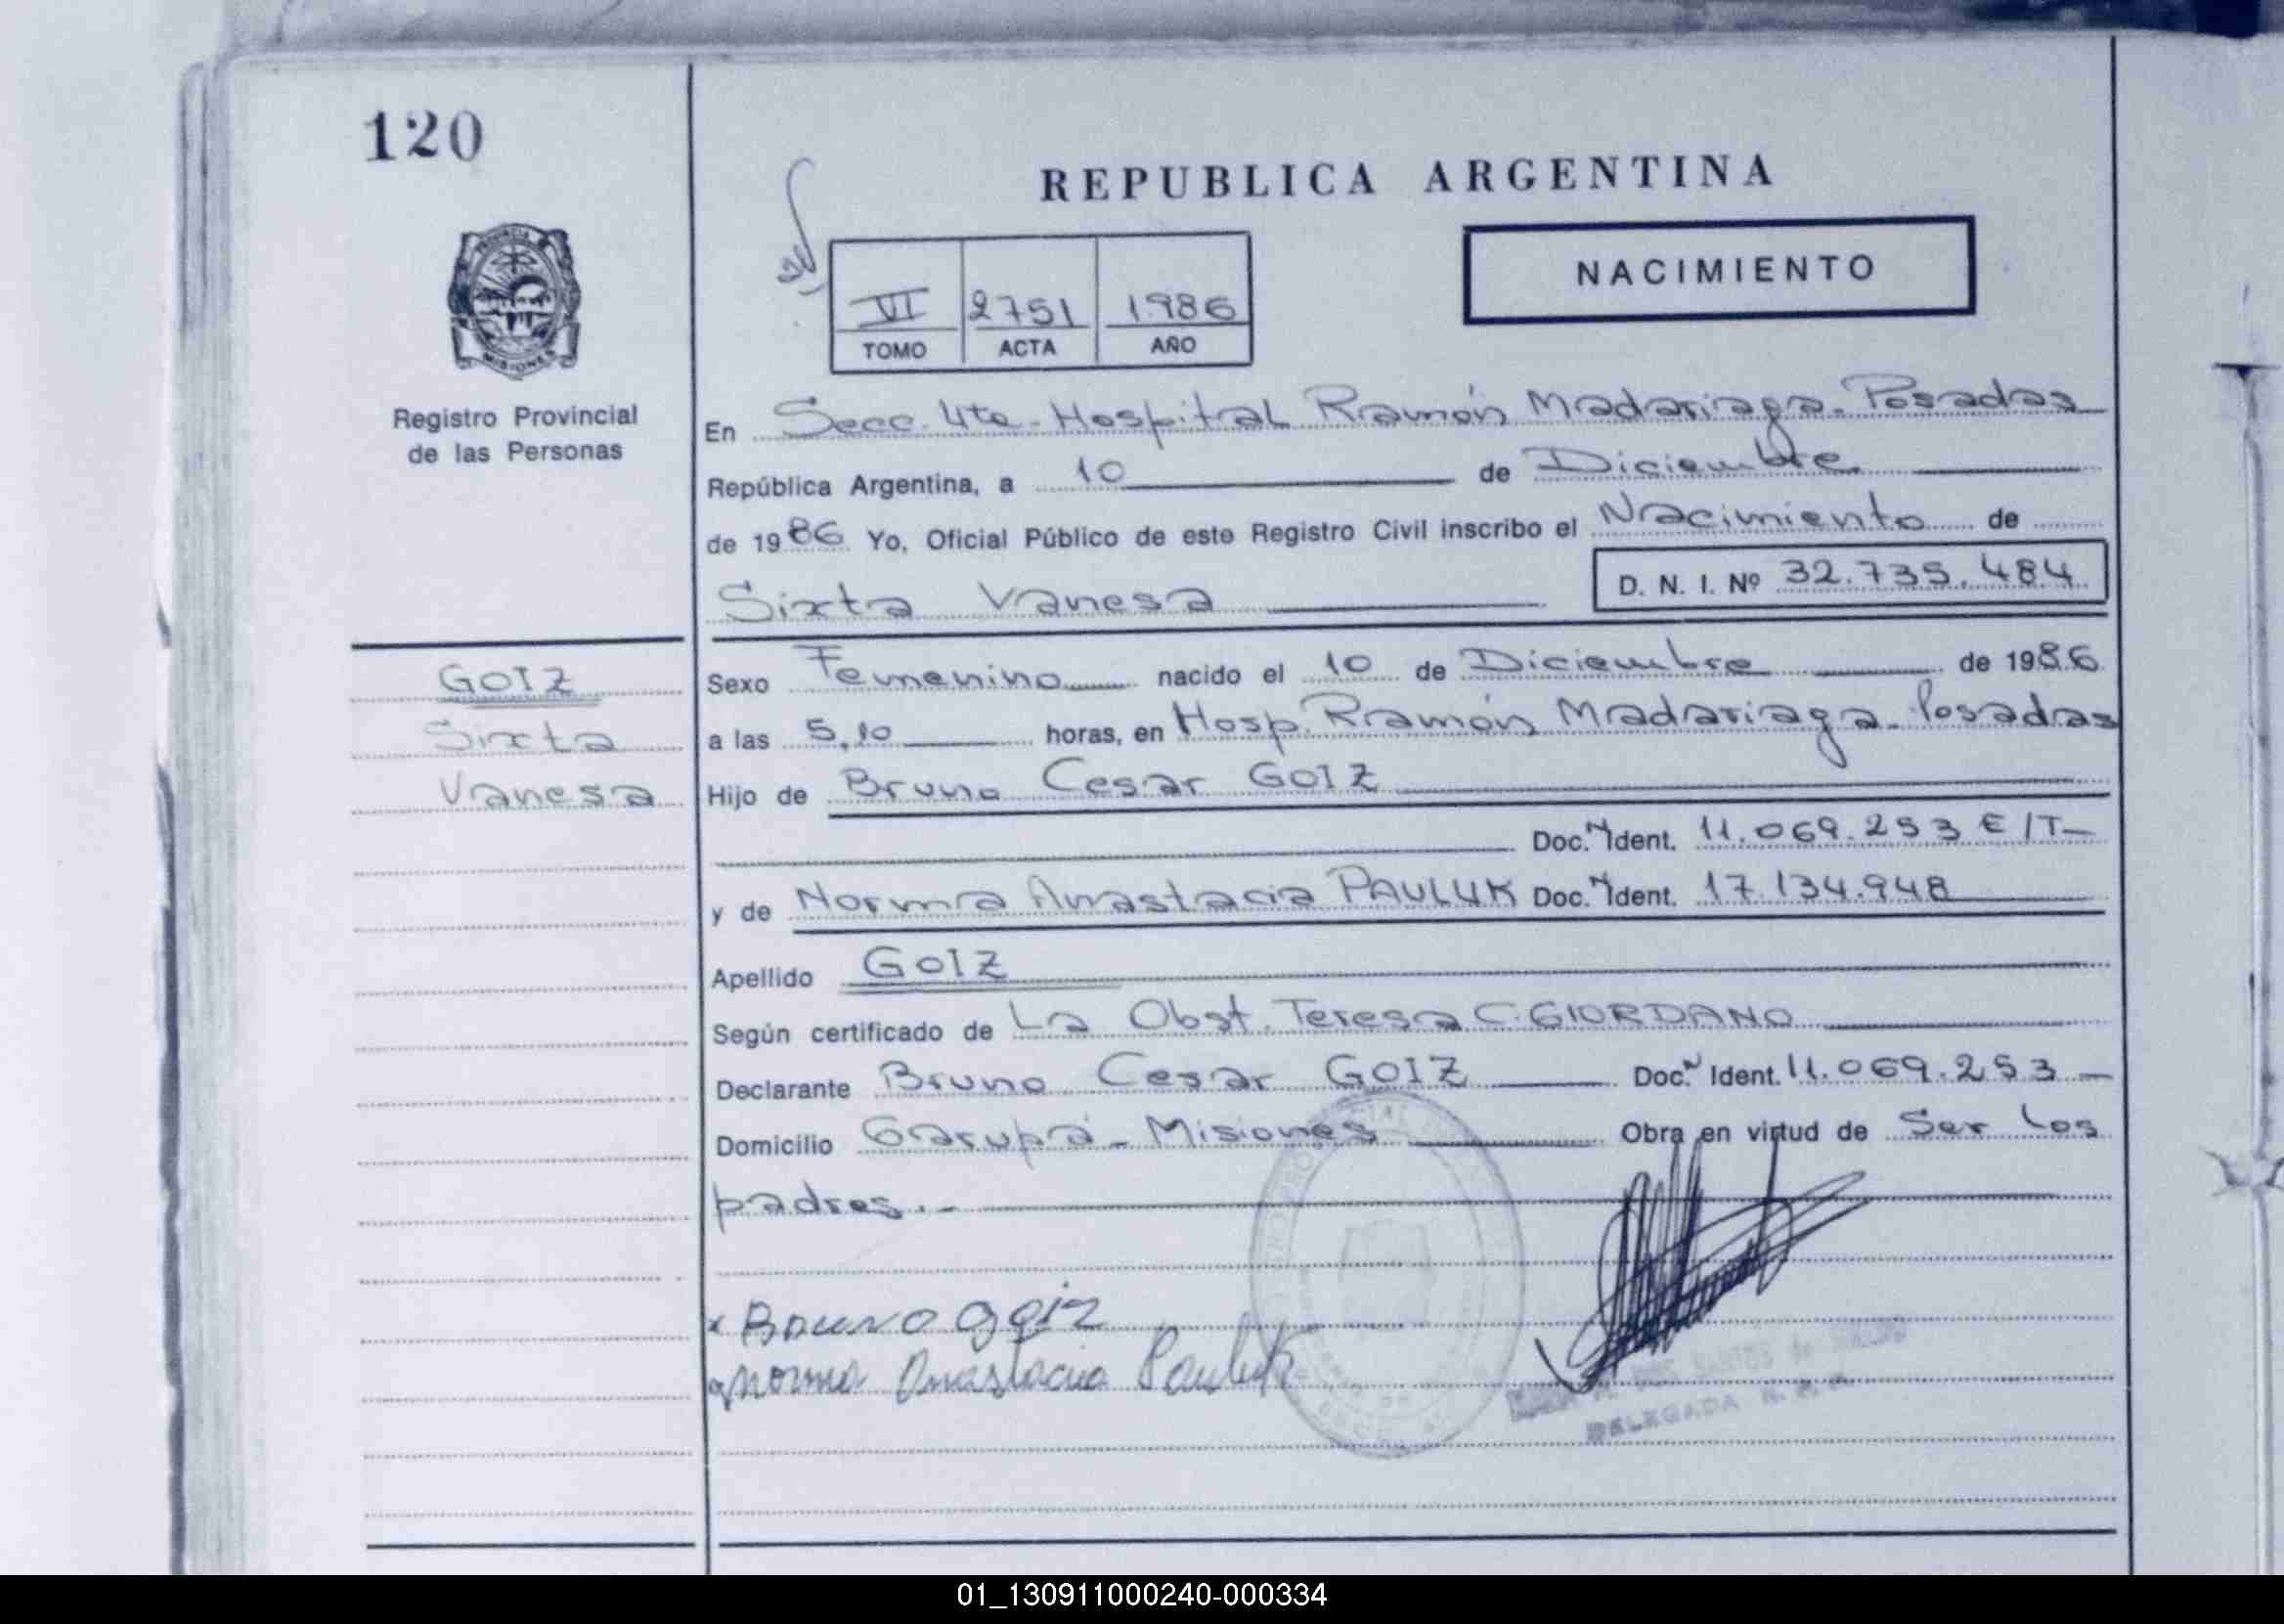 120
REPUBLICA ARGENTINA
NACIMIENTO
VI 2751 1986
TOMO ACTA AÑO
PROVINCIA DE
MISIONES
Registro Provincial
de las Personas
En Secc. 4ta - Hospital Ramón Madariaga - Posadas
República Argentina, a 10 de Diciembre
de 1986 Yo, Oficial Público de este Registro Civil inscribo el Nacimiento de
Sixta Vanesa D. N. I. Nº 32.735.484
GOIZ
Sixta
Vanesa
Sexo Femenino nacido el 10 de Diciembre de 1986
a las 5,10 horas, en Hosp. Ramón Madariaga - Posadas
Hijo de Bruno Cesar GOIZ
Doc. N Ident. 11.069.253 E/T-
y de Norma Anastacia PAULUK Doc. N Ident. 17.134.948
Apellido GOIZ
Según certificado de La Obst. Teresa C. GIORDANO
Declarante Bruno Cesar GOIZ Doc. N Ident. 11.069.253 -
Domicilio Garupá - Misiones Obra en virtud de Ser los
padres.-
x Bruno goiz
norma Anastacia Pauluk
SANTOS de
DELEGADA
01_130911000240-000334